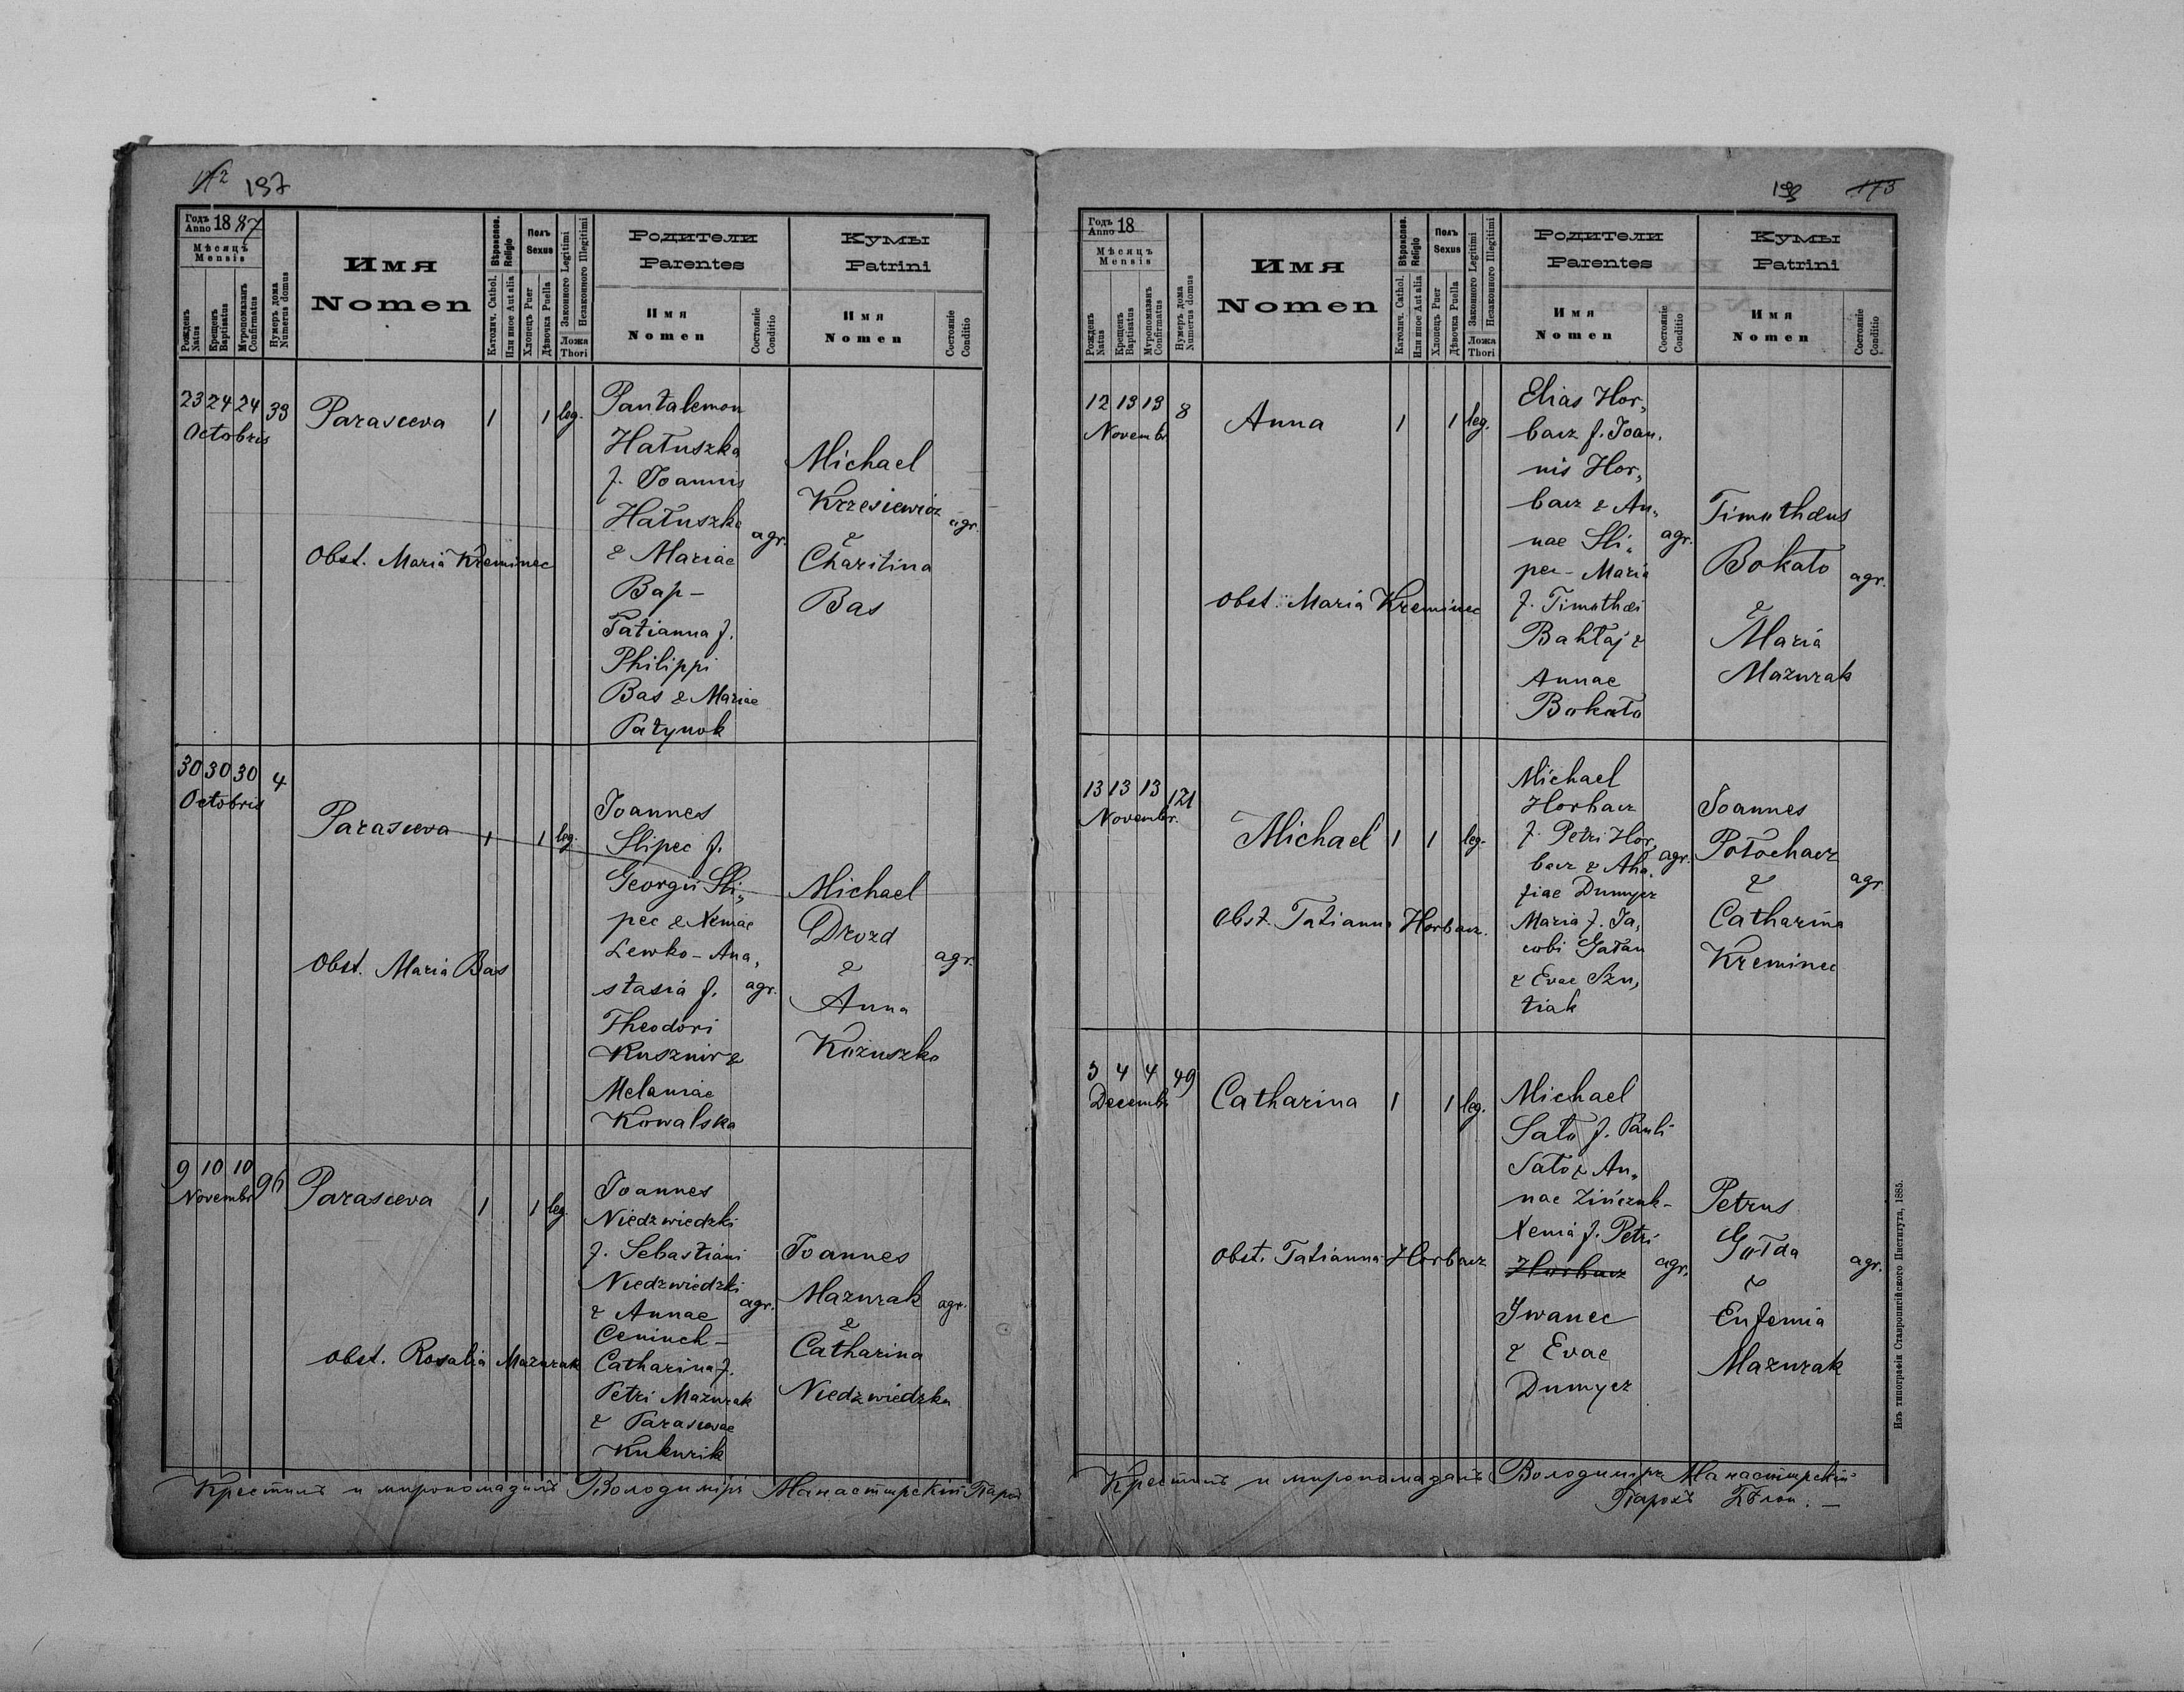 197
Годъ Anno 1887
Мѣсяцъ
Mensis
Рожденъ Natus
Крещенъ Baptisatus
Мѵропомазанъ Confirmatus
Нумеръ дома Numerus domus
Имя
Nomen
Вѣроиспов. Religio
Католич. Cathol.
Или иное Aut alia
Полъ
Sexus
Хлопецъ Puer
Дѣвочка Puella
Законного Legitimi
Незаконного Illegitimi
Ложа
Thori
Родители
Parentes
Имя
Nomen
Состоянie Conditio
Кумы
Patrini
Имя
Nomen
Состоянie Conditio
23 24 24 33
Octobris
Parasceva 1 1 leg.
Obst. Maria Kreminec
Pantalemon
Hałuszka
f. Joannis
Hałuszka
& Mariae
Bap-
Tatianna f.
Philippi
Bas & Mariae
Patynok
agr.
Michael
Krzesiewicz
&
Charitina
Bas
agr.
30 30 30 4
Octobris
Parasceva 1 1 leg.
Obst. Maria Bas
Joannes
Slipec f.
Georgii Sli„
pec & Xeniae
Lewko - Ana„
stasia f.
Theodori
Kusznir &
Melaniae
Kowalska
agr.
Michael
Drozd
&
Anna
Kożuszko
agr.
9 10 10 96
Novembr
Parasceva 1 1 leg
Obst. Rosalia Mazurak
Joannes
Niedzwiedzki
f. Sebastiani
Niedzwiedzki
& Annae
Ceniuch -
Catharina f.
Petri Mazurak
& Parascevae
Kukurik
agr.
Joannes
Mazurak
&
Catharina
Niedzwiedzka
agr.
Крестилъ и миропомазалъ Володимiръ Манастирскiй Парох
173
Годъ Anno 18
Мѣсяцъ
Mensis
Рожденъ Natus
Крещенъ Baptisatus
Мѵропомазанъ Confirmatus
Нумеръ дома Numerus domus
Имя
Nomen
Вѣроиспов. Religio
Католич. Cathol.
Или иное Aut alia
Полъ
Sexus
Хлопецъ Puer
Дѣвочка Puella
Законного Legitimi
Незаконного Illegitimi
Ложа
Thori
Родители
Parentes
Имя
Nomen
Состоянie Conditio
Кумы
Patrini
Имя
Nomen
Состоянie Conditio
12 13 13 8
Novembr
Anna 1 1 leg.
Obst. Maria Kreminec
Elias Hor„
bacz f. Joan„
nis Hor„
bacz & An„
nae Sli„
pec - Maria
f. Timothei
Bahłaj &
Annae
Bokało
agr.
Timotheus
Bokało
&
Maria
Mazurak
agr.
13 13 13 121
Novembr.
Michael 1 1 leg.
Obst. Tatianna Horbacz.
Michael
Horbacz
f. Petri Hor„
bacz & Aha„
fiae Dumycz
Maria f. Ja„
cobi Gałan
& Evae Szu„
tiak
agr.
Joannes
Potochacz
&
Catharina
Kreminec
agr
3 4 4 49
Decembr
Catharina 1 1 leg.
Obst. Tatianna Horbacz
Michael
Sało f. Pauli
Sało & An„
nae Zińczuk -
Xenia f. Petri
Horbacz
Iwanec
& Evae
Dumycz
agr.
Petrus
Gołda
&
Eufemia
Mazurak
agr.
Крестилъ и миропомазалъ Володимiръ Манастирскiй
Парохъ
Изъ типографiи Ставропигiйского Института, 1885.